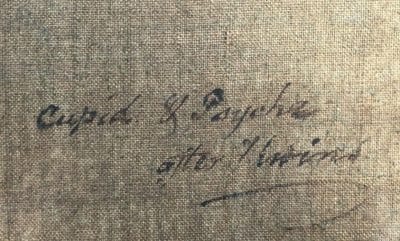 Cupid & Psyche
after T Uwins